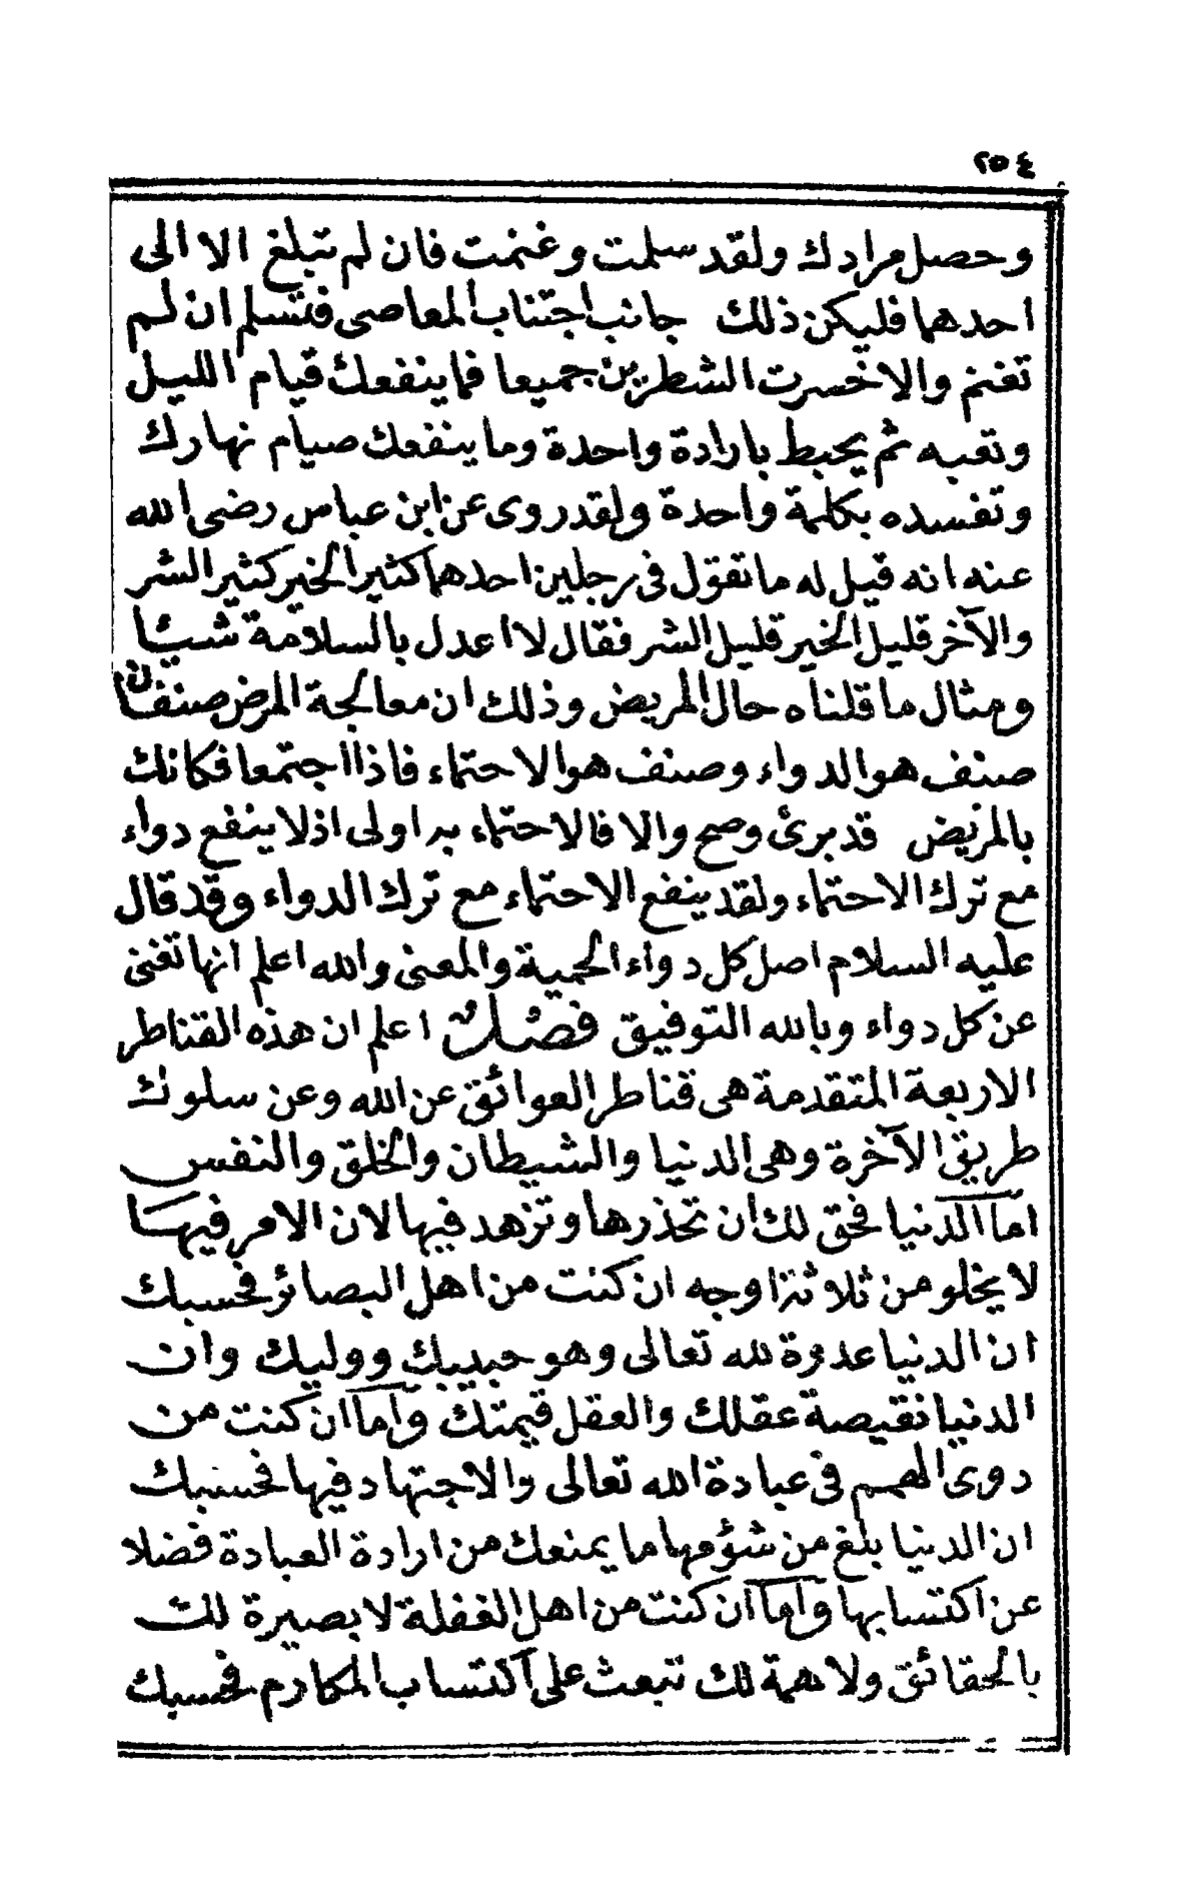 ٢٥٤
وحصل مرادك ولقد سلمت وغنمت فان لم تبلغ الا الى
احدهما فليكن ذلك جانب اجتناب المعاصى فتسلم ان لم
تغنم والا خسرت الشطرين جميعا فما ينفعك قيام الليل
وتعبه ثم يحبط بارادة واحدة وما ينفعك صيام نهارك
وتفسده بكلمة واحدة ولقد روى عن ابن عباس رضى الله
عنه انه قيل له ما تقول فى رجلين احدهما كثير الخير كثير الشر
والآخر قليل الخير قليل الشر فقال لا اعدل بالسلامة شيئا
ومثال ما قلناه حال المريض وذلك ان معالجة المرض صنفان
صنف هو الدواء وصنف هو الاحتماء فاذا اجتمعا فكانك
بالمريض قد برئ وصح والا فالاحتماء به اولى اذ لا ينفع دواء
مع ترك الاحتماء ولقد ينفع الاحتماء مع ترك الدواء وقد قال
عليه السلام اصل كل دواء الحمية والمعنى والله اعلم انها تغنى
عن كل دواء وبالله التوفيق فصل اعلم ان هذه القناطر
الاربعة المتقدمة هى قناطر العوائق عن الله وعن سلوك
طريق الآخرة وهى الدنيا والشيطان والخلق والنفس
اما الدنيا فحق لك ان تحذرها وتزهد فيها لان الامر فيها
لا يخلو من ثلاثة اوجه ان كنت من اهل البصائر فحسبك
ان الدنيا عدوة لله تعالى وهو حبيبك ووليك وان
الدنيا نقيصة عقلك والعقل قيمتك واما ان كنت من
دوى الهمم فى عبادة الله تعالى والاجتهاد فيها فحسبك
ان الدنيا بلغ من شؤمها ما يمنعك من ارادة العبادة فضلا
عن اكتسابها واما ان كنت من اهل الغفلة لا بصيرة لك
بالحقائق ولا همة لك تبعث على اكتساب المكارم فحسبك